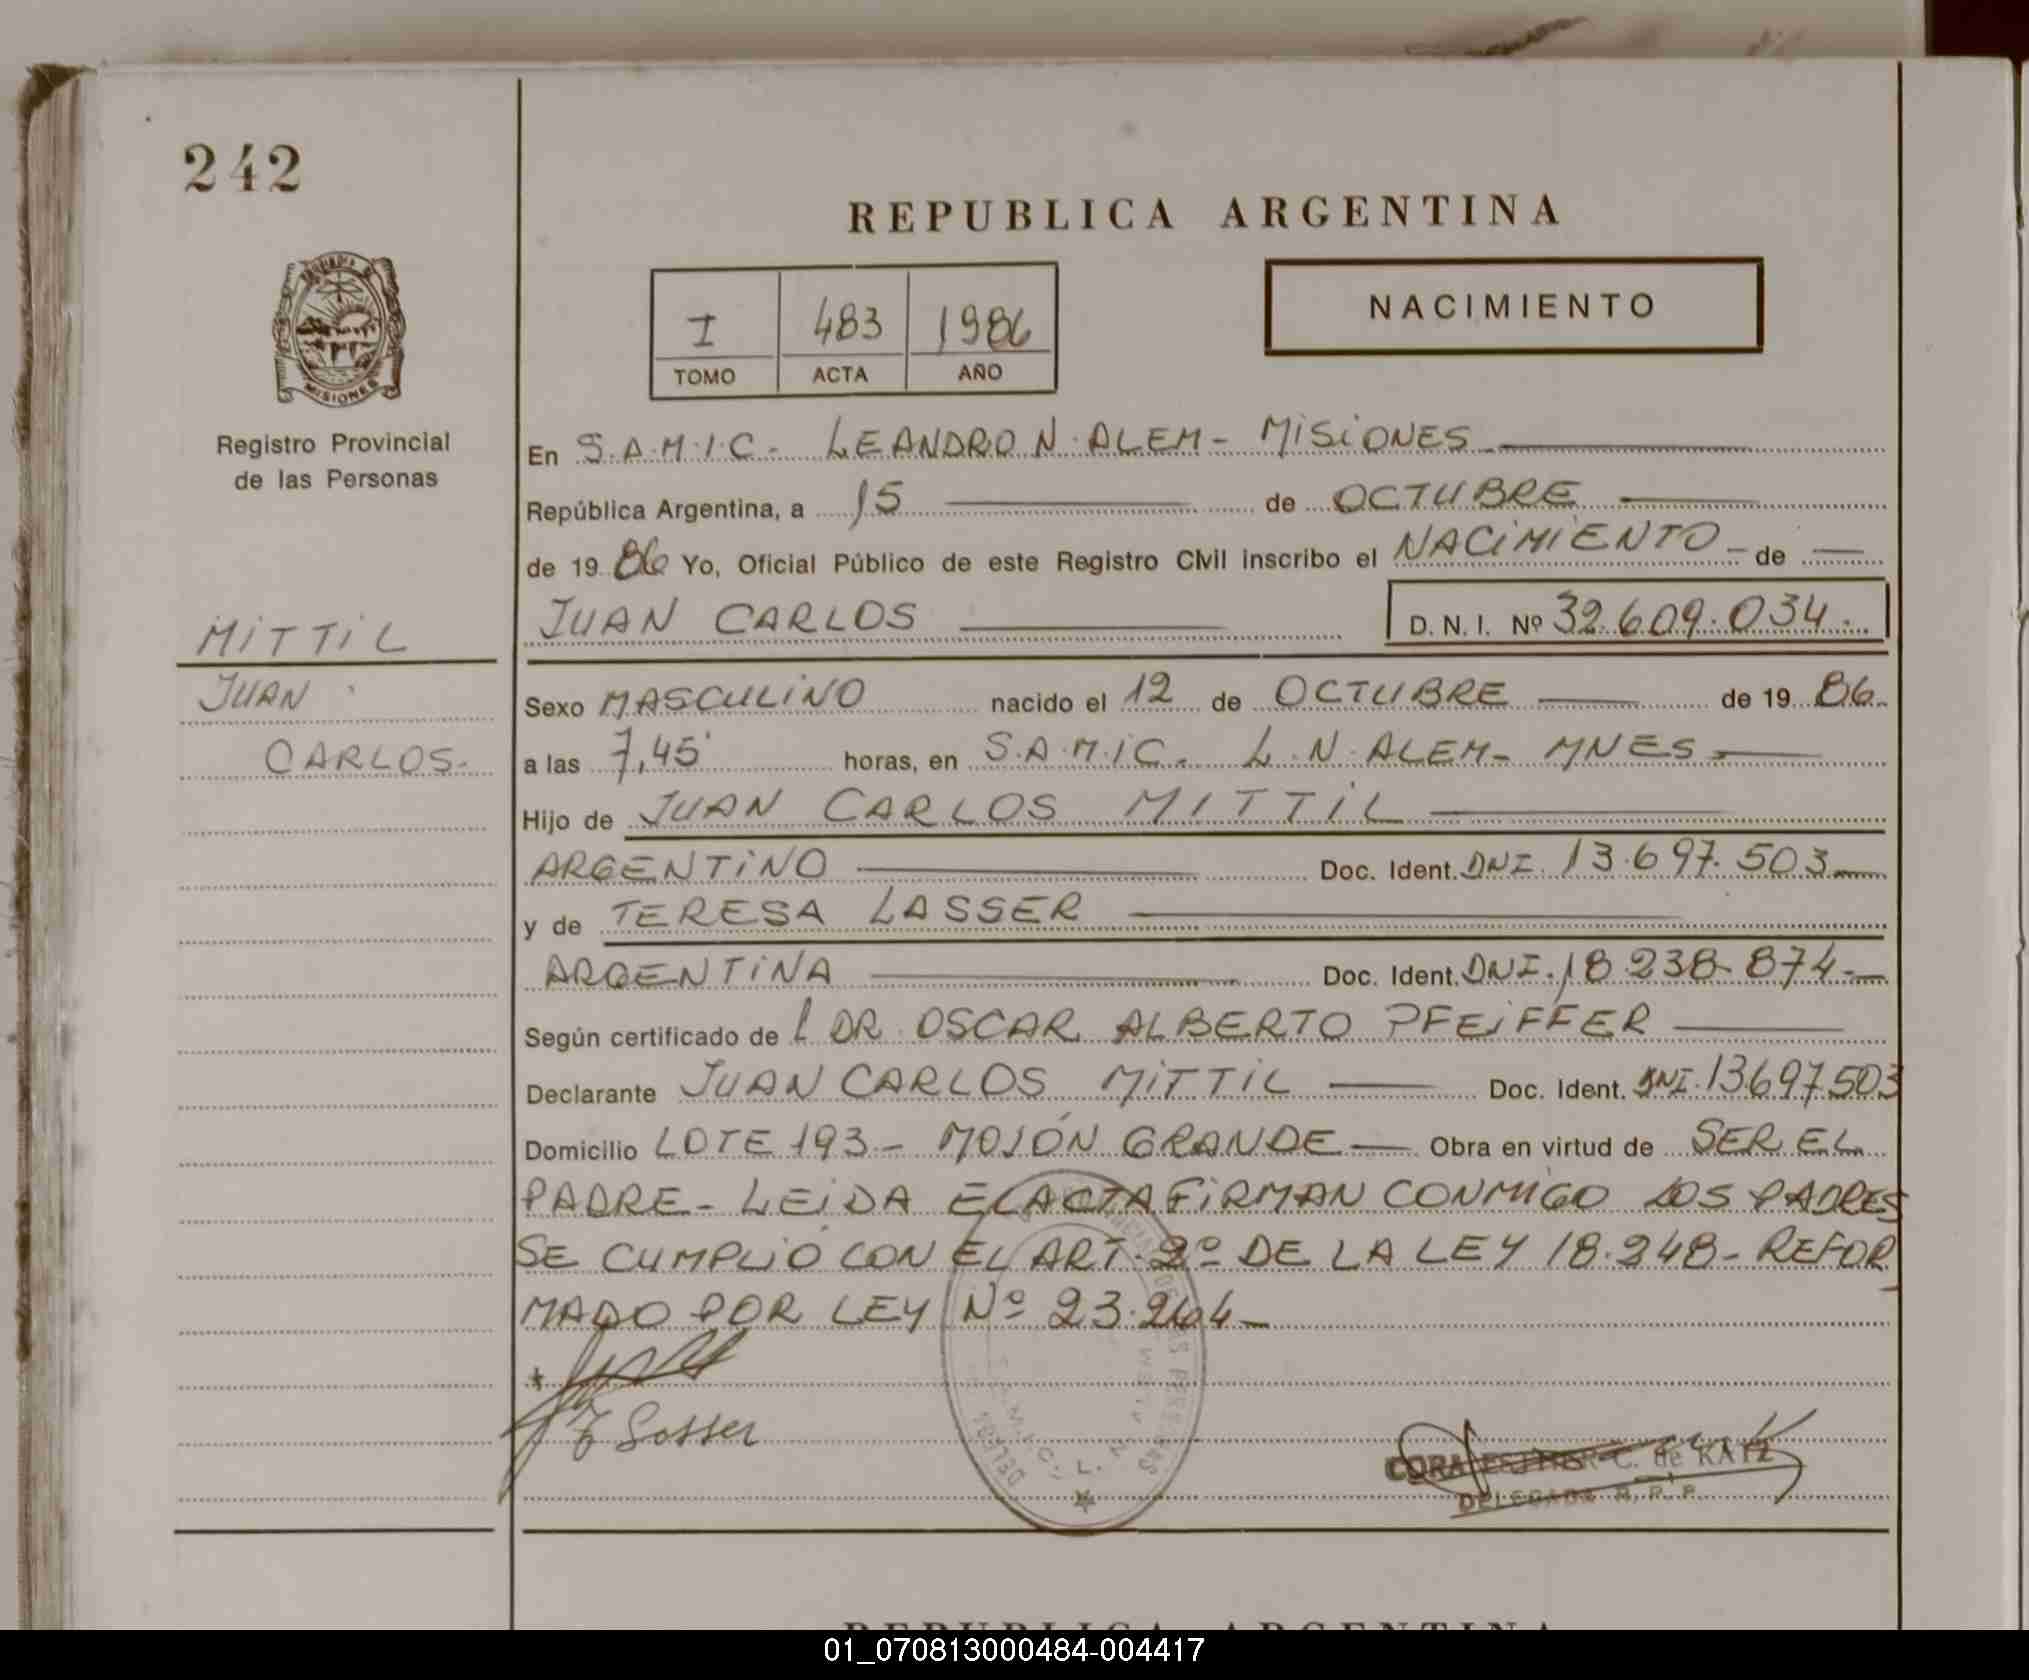 242
REPUBLICA ARGENTINA
NACIMIENTO
I 483 1986
TOMO ACTA AÑO
MISIONES
Registro Provincial
de las Personas
En S.A.M.I.C. LEANDRO N. ALEM - MISIONES
República Argentina, a 15 de OCTUBRE
de 19 86 Yo, Oficial Público de este Registro Civil inscribo el NACIMIENTO de
JUAN CARLOS D. N. I. Nº 32.609.034.
MITTIL
JUAN
CARLOS.
Sexo MASCULINO nacido el 12 de OCTUBRE de 19 86.
a las 7,45 horas, en S.A.M.I.C. L.N. ALEM - MNES
Hijo de JUAN CARLOS MITTIL
ARGENTINO Doc. Ident. DNI. 13.697.503
y de TERESA LASSER
ARGENTINA Doc. Ident. DNI. 18.238.874
Según certificado de L DR. OSCAR ALBERTO PFEIFFER
Declarante JUAN CARLOS MITTIL Doc. Ident. DNI. 13.697.503
Domicilio LOTE 193 - MOJÓN GRANDE Obra en virtud de SER EL
PADRE - LEIDA EL ACTA FIRMAN CONMIGO LOS PADRES
SE CUMPLIÓ CON EL ART. 2º DE LA LEY 18.248 - REFOR
MADO POR LEY Nº 23.264
CORA ESTHER C. de KATZ
DELEGADA R. P. P.
REPUBLICA ARGENTINA
01_070813000484-004417